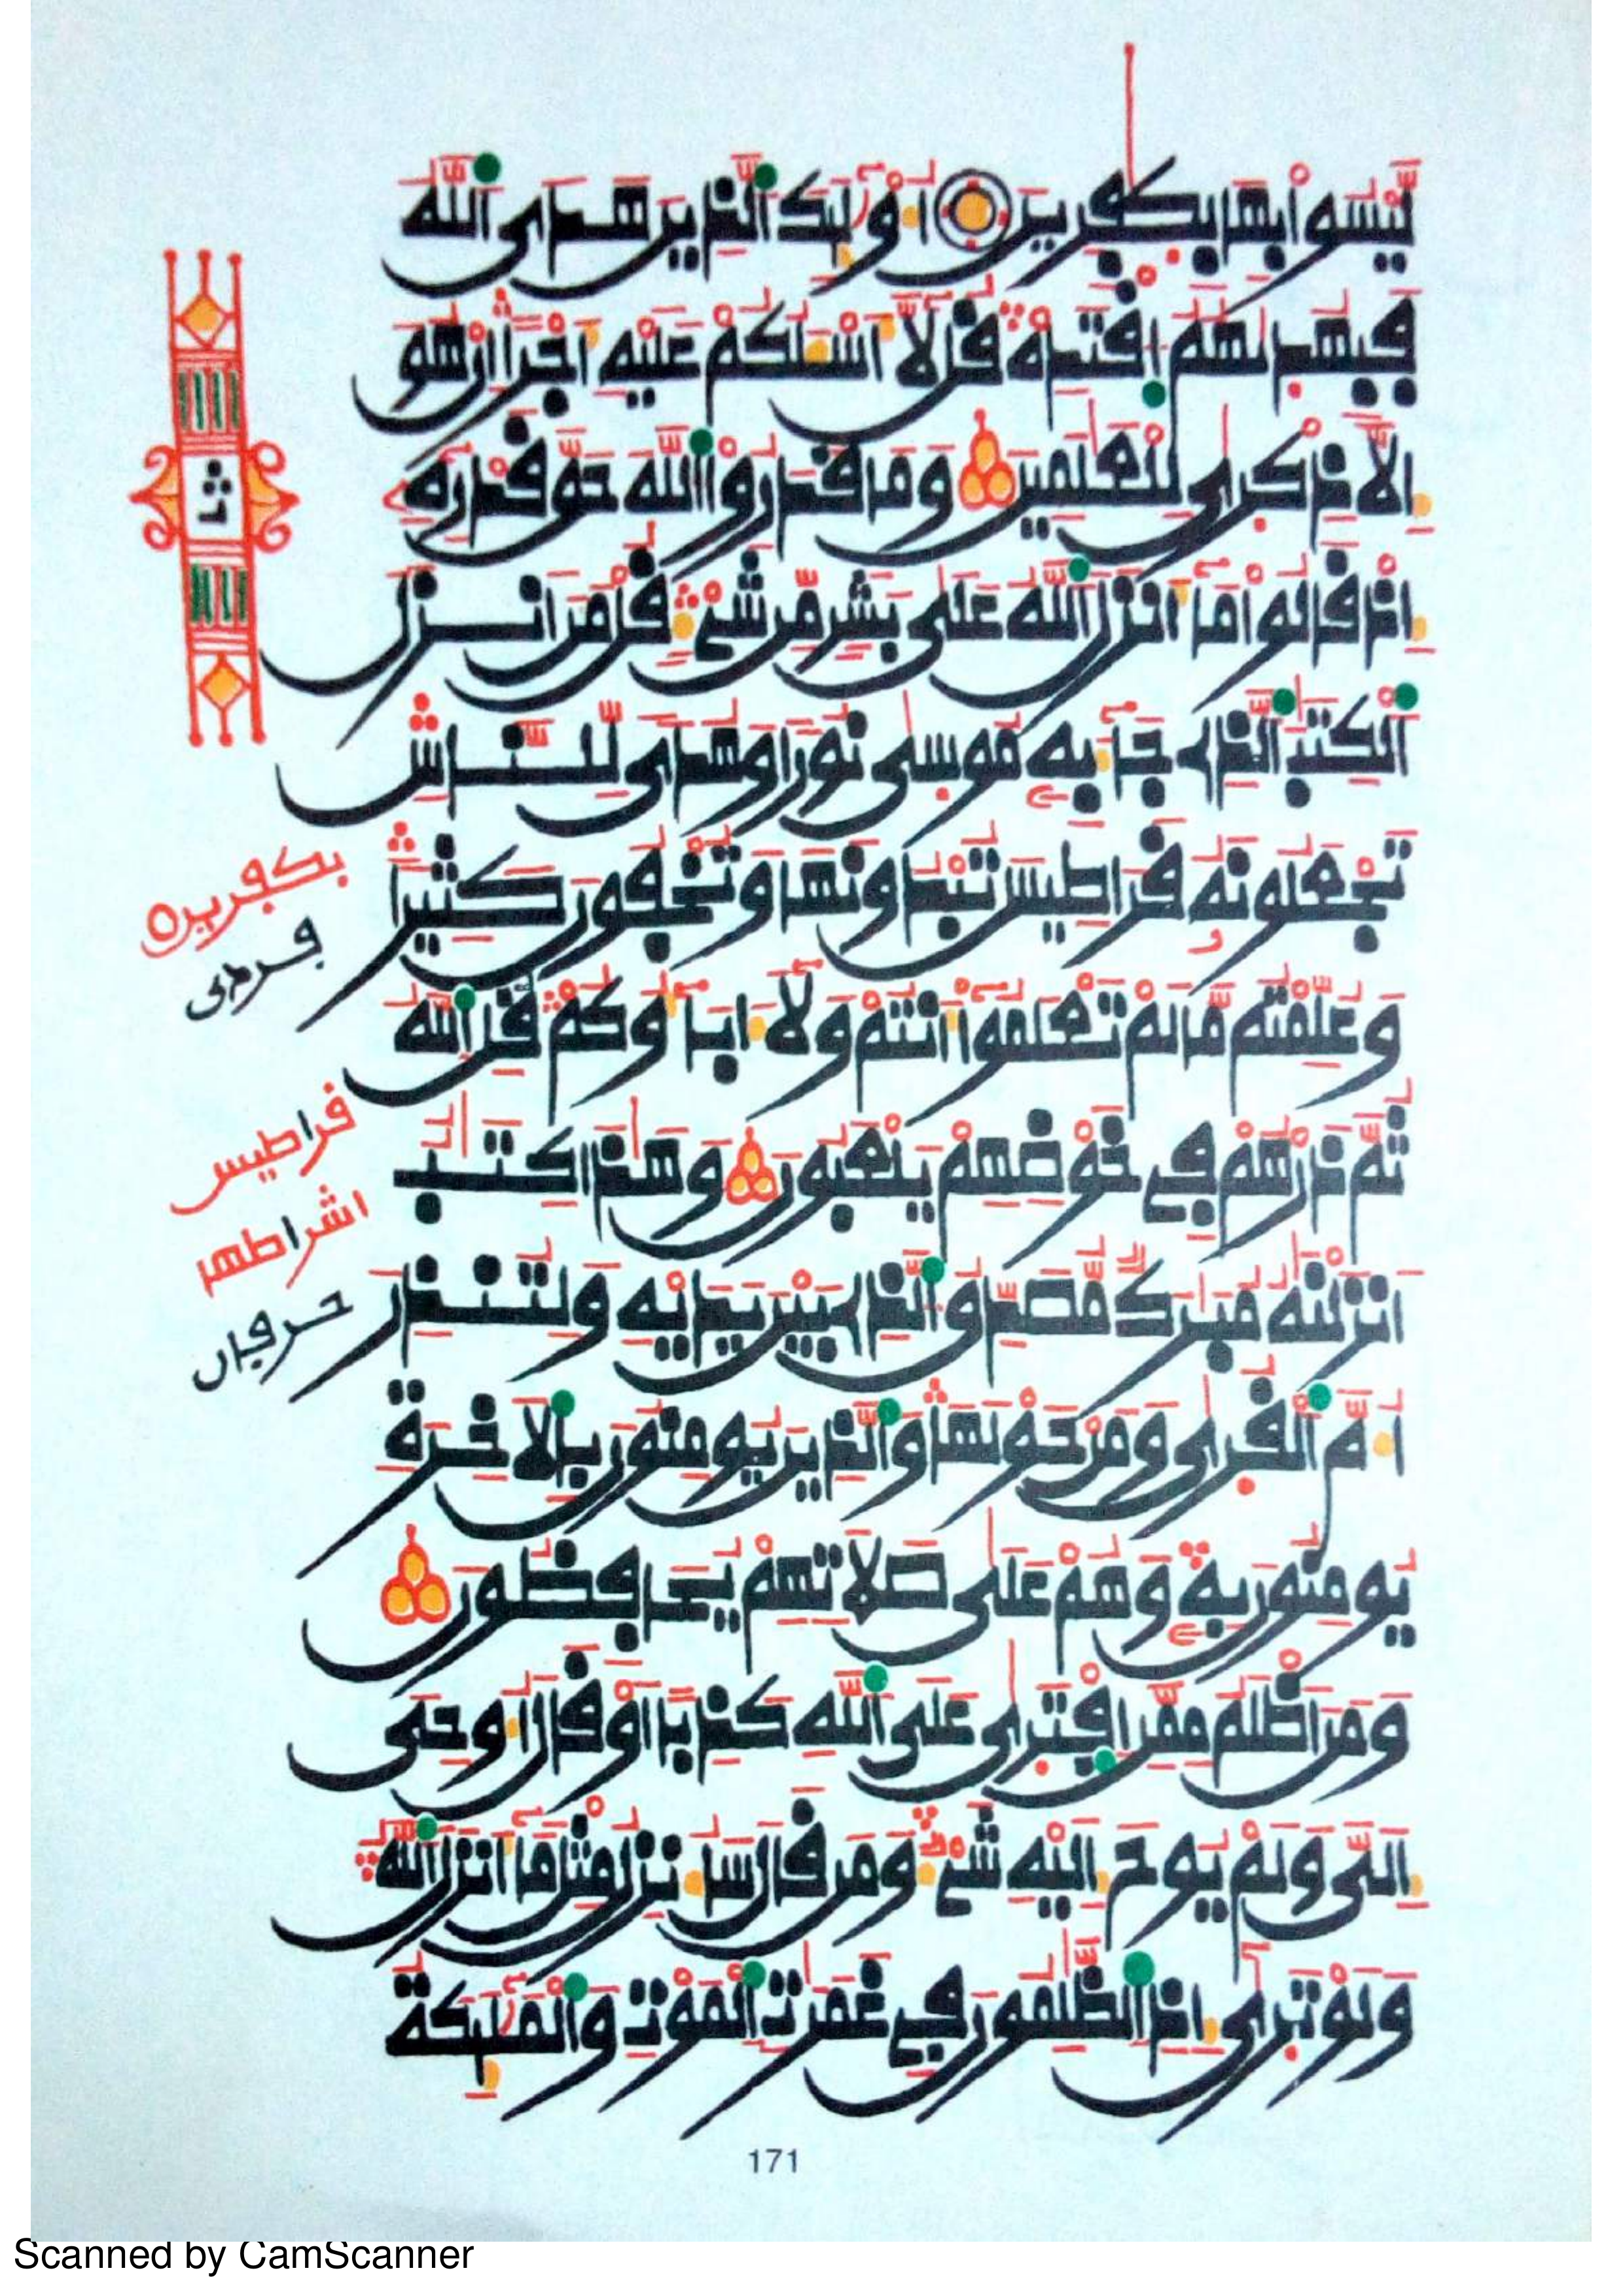 لَّيْسُوا۟ بِهَا بِكَٰفِرِينَ أُو۟لَٰٓئِكَ ٱلَّذِينَ هَدَى ٱللَّهُ
فَبِهُدَىٰهُمُ ٱقْتَدِهْ قُل لَّآ أَسْـَٔلُكُمْ عَلَيْهِ أَجْرًا إِنْ هُوَ
إِلَّا ذِكْرَىٰ لِلْعَٰلَمِينَ وَمَا قَدَرُوا۟ ٱللَّهَ حَقَّ قَدْرِهِۦٓ
إِذْ قَالُوا۟ مَآ أَنزَلَ ٱللَّهُ عَلَىٰ بَشَرٍ مِّن شَىْءٍ قُلْ مَنْ أَنزَلَ
ٱلْكِتَٰبَ ٱلَّذِى جَآءَ بِهِۦ مُوسَىٰ نُورًا وَهُدًى لِّلنَّاسِ
تَجْعَلُونَهُۥ قَرَاطِيسَ تُبْدُونَهَا وَتُخْفُونَ كَثِيرًا
وَعُلِّمْتُم مَّا لَمْ تَعْلَمُوٓا۟ أَنتُمْ وَلَآ ءَابَآؤُكُمْ قُلِ ٱللَّهُ
ثُمَّ ذَرْهُمْ فِى خَوْضِهِمْ يَلْعَبُونَ وَهَٰذَا كِتَٰبٌ
أَنزَلْنَٰهُ مُبَٰرَكٌ مُّصَدِّقُ ٱلَّذِى بَيْنَ يَدَيْهِ وَلِتُنذِرَ
أُمَّ ٱلْقُرَىٰ وَمَنْ حَوْلَهَا وَٱلَّذِينَ يُومِنُونَ بِٱلَاخِرَةِ
يُومِنُونَ بِهِۦ وَهُمْ عَلَىٰ صَلَاتِهِمْ يُحَافِظُونَ
وَمَنْ أَظْلَمُ مِمَّنِ ٱفْتَرَىٰ عَلَى ٱللَّهِ كَذِبًا أَوْ قَالَ أُوحِىَ
إِلَىَّ وَلَمْ يُوحَ إِلَيْهِ شَىْءٌ وَمَن قَالَ سَأُنزِلُ مِثْلَ مَآ أَنزَلَ ٱللَّهُ
وَلَوْ تَرَىٰٓ إِذِ ٱلظَّٰلِمُونَ فِى غَمَرَٰتِ ٱلْمَوْتِ وَٱلْمَلَٰٓئِكَةُ
بكفرين
قراطيس
171
Scanned by CamScanner